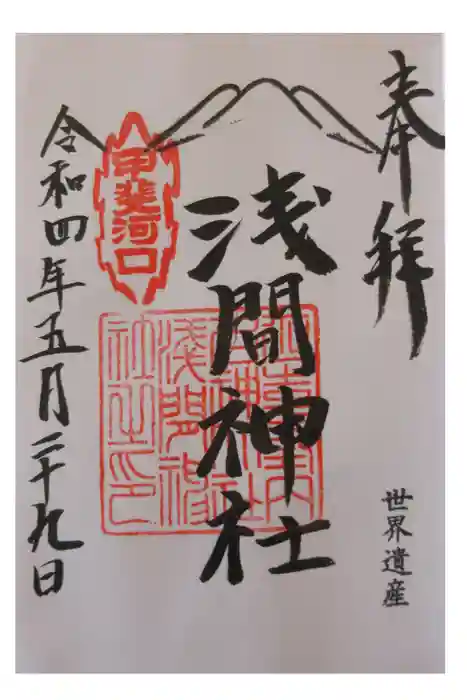 奉拝
世界遺産
浅間神社
甲斐河口
令和四年五月二十九日